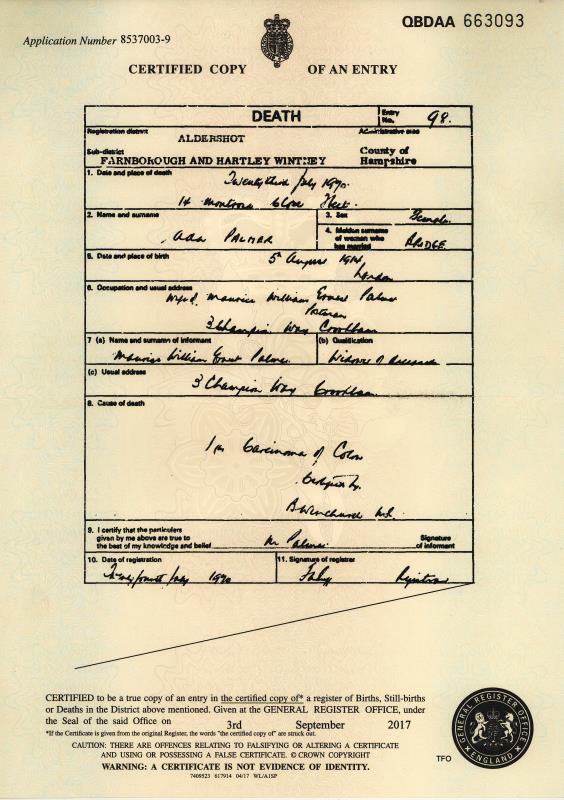 QBDAA 663093
Application Number 8537003-9
CERTIFIED COPY OF AN ENTRY
DEATH
Entry No. 98.
Registration district ALDERSHOT
Administrative area
Sub-district
FARNBOROUGH AND HARTLEY WINTNEY
County of Hampshire
1. Date and place of death
Twenty third July 1970.
14 Close Fleet.
2. Name and surname
Ada PALMER
3. Sex
Female.
4. Maiden surname of woman who has married
BRIDGE.
5. Date and place of birth
5th August 1914,
London
6. Occupation and usual address
Wife of Maurice William Ernest Palmer
Postman
3 Champion Way Crookham
7 (a) Name and surname of informant
Maurice William Ernest Palmer.
(b) Qualification
Widower of deceased
(c) Usual address
3 Champion Way Crookham
8. Cause of death
Carcinoma of Colon
Certified by
9. I certify that the particulars
given by me above are true to
the best of my knowledge and belief
Palmer
Signature
of informant
10. Date of registration
Twenty fourth July 1970
11. Signature of registrar
Registrar
CERTIFIED to be a true copy of an entry in the certified copy of* a register of Births, Still-births
or Deaths in the District above mentioned. Given at the GENERAL REGISTER OFFICE, under
the Seal of the said Office on 3rd September 2017
*If the Certificate is given from the original Register, the words "the certified copy of" are struck out.
CAUTION: THERE ARE OFFENCES RELATING TO FALSIFYING OR ALTERING A CERTIFICATE
AND USING OR POSSESSING A FALSE CERTIFICATE. © CROWN COPYRIGHT
WARNING: A CERTIFICATE IS NOT EVIDENCE OF IDENTITY.
7409523 617914 04/17 WL/A1SP
TFO
GENERAL REGISTER OFFICE
ENGLAND